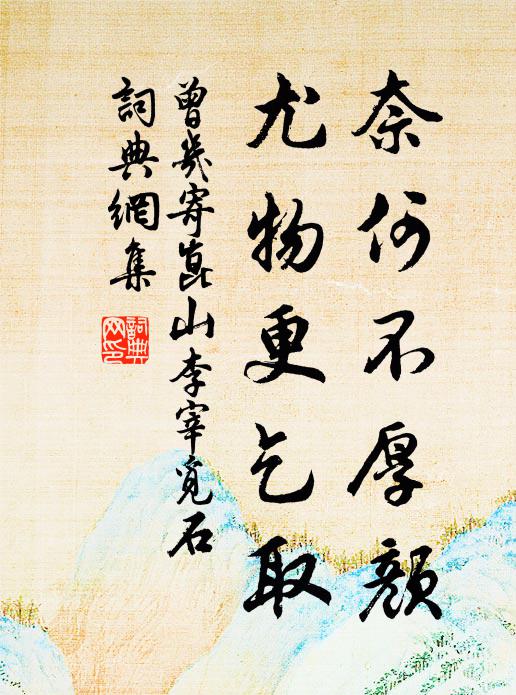 奈何不厚顏
尤物更乞取
曾幾寄崑山李宰覓石
詞典網集
詞典網印